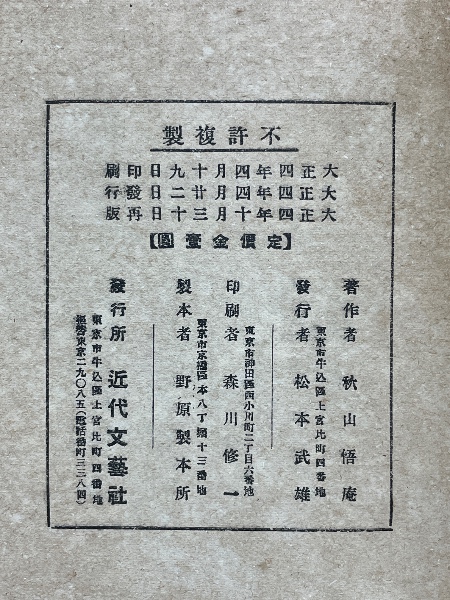 不許複製
大正四年四月十九日印刷
大正四年四月廿二日發行
大正四年十月三十日再版
【定價金壹圓】
著作者 秋山悟庵
東京市牛込區上宮比町四番地
發行者 松本武雄
東京市神田區西小川町二丁目六番地
印刷者 森川修一
東京市京橋區本八丁堀十三番地
製本者 野原製本所
發行所 近代文藝社
東京市牛込區上宮比町四番地
振替東京二九〇八五(電話番町三三八四)